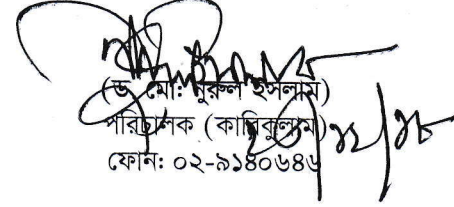 (ড. মো: নুরুল ইসলাম)
পরিচালক (কারিকুলাম)
ফোন: ০২-৯১৪০৬৪৬